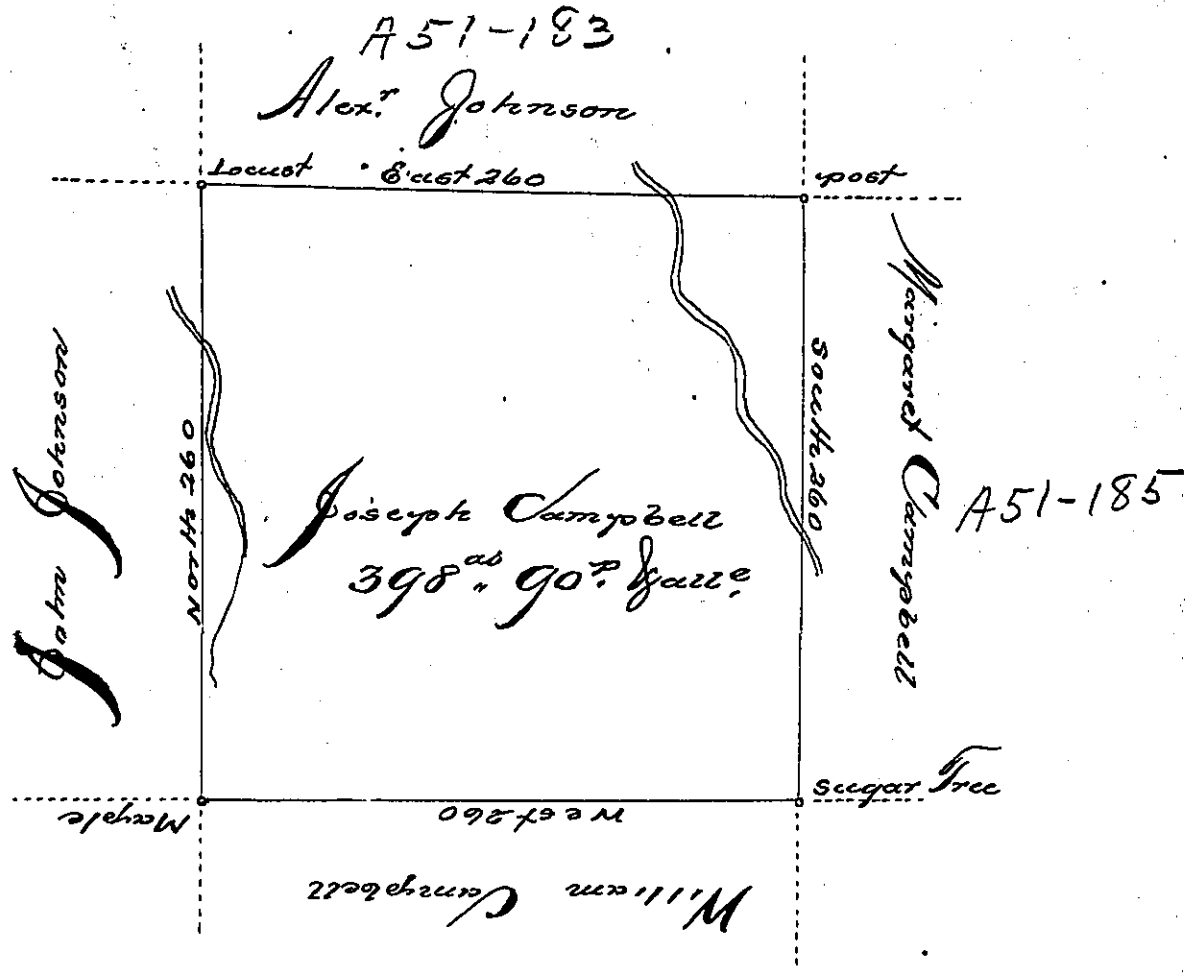 A51-183
Alex.r Johnson
Locust East 260 post
John Johnson
North 260
Joseph Campbell
398 as 90 p. & alle.
South 260
Margaret Campbell
A51-185
Sugar Tree
West 260
Maple
William Campbell